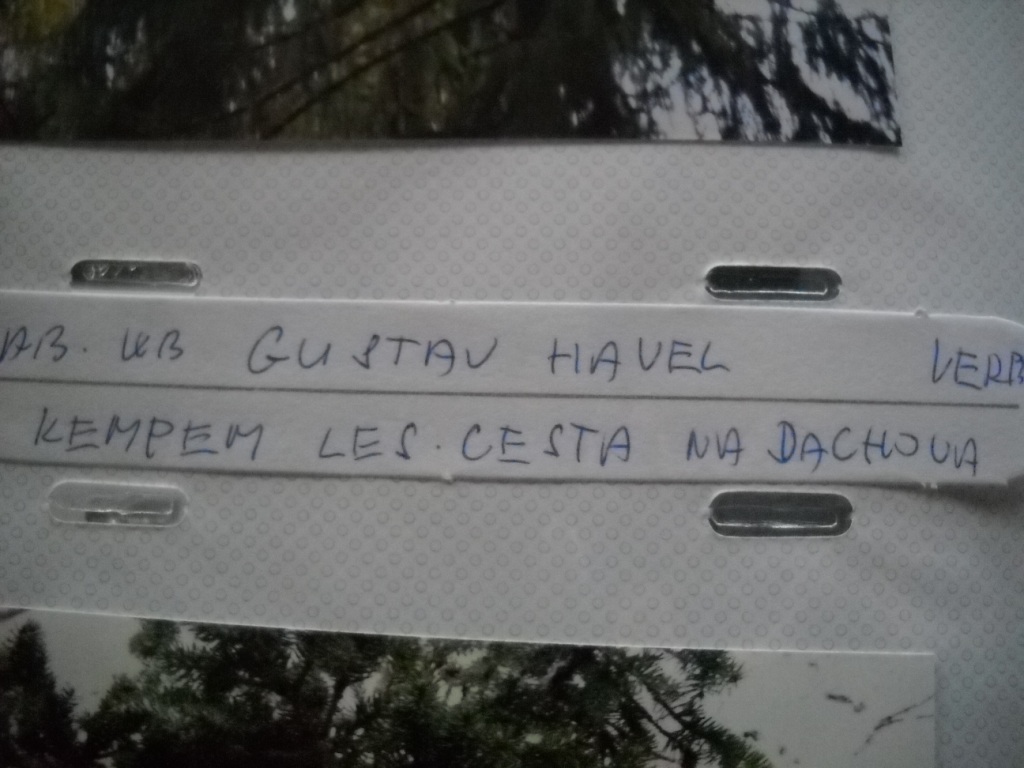 AB. WB GUSTAV HAVEL VERB
KEMPEM LES. CESTA NA DACHOVA